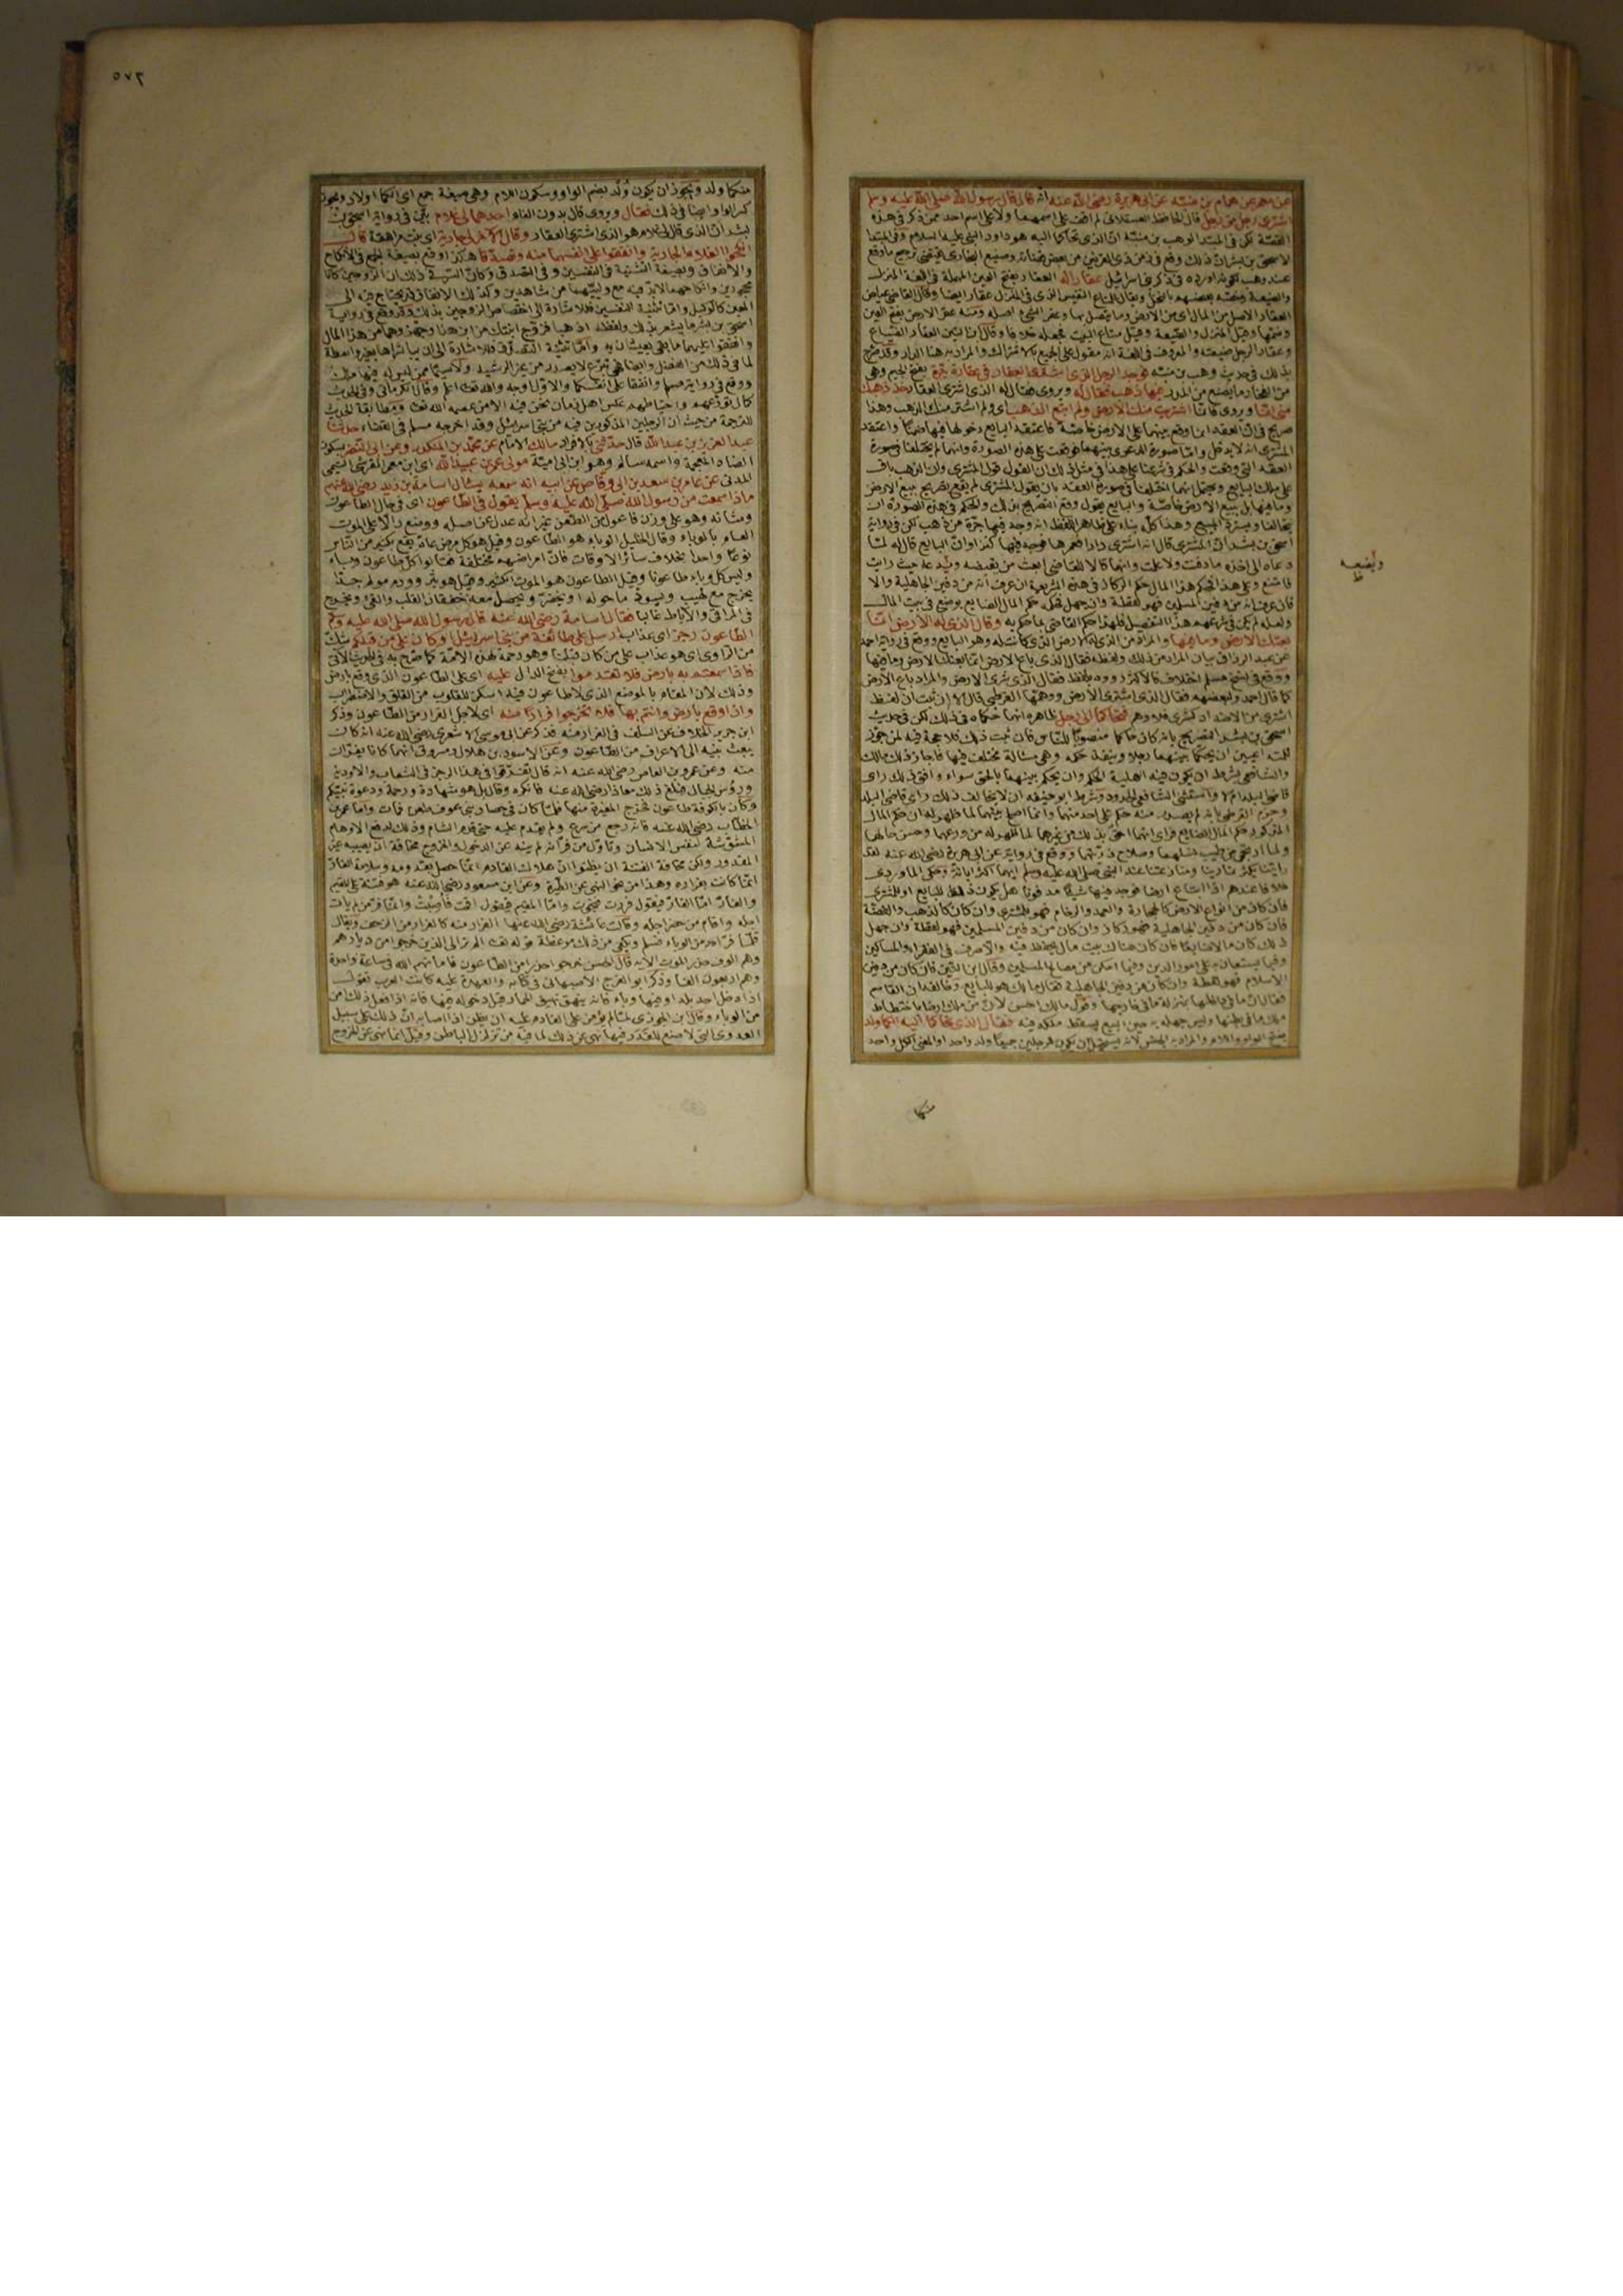 عن معمر عن همام بن منبه عن ابى هريرة رضى الله عنه انه قال قال رسول الله صلى الله عليه وسلم
اشترى رجل من رجل قال الحافظ العسقلانى لم اقف على اسمهما ولا على اسم احد ممن ذكر فى هذه
القصة لكن فى المبتدأ لوهب بن منبه ان الذى تحاكما اليه هو داود النبى عليه السلام وفى المبتدا
لاسحق بن بشر ان ذلك وقع فى زمن ذى القرنين من بعض قضاته وصنيع البخارى يقتضى ترجيح ما وقع
عند وهب لكونه اورده فى ذكر بنى اسرائيل عقارا له العقار بفتح العين المهملة فى اللغة المنزل
والضيعة وخصه بعضهم بالنخل ويقال للمتاع النفيس الذى فى المنزل عقار ايضا وقال القاضى عياض
العقار الاصل من المال
وضمها وقيل المنزل والضيعة وقيل متاع البيت فجعله خلافا وقال ابن التين العقار الضياع
وعقار الرجل ضيعته والمعروف فى اللغة انه مقول على الجميع بالاشتراك والمراد به هنا الدار وقد صرح
بذلك فى حديث وهب بن منبه فوجد الرجل الذى اشترى العقار فى عقاره جرة بفتح الجيم وهى
من الفخار ما يصنع من المدر فيها ذهب فقال له ويروى فقال له الذى اشترى العقار خذ ذهبك
منى انما ويروى فانما اشتريت منك الارض ولم ابتع الذهب اى ولم اشتر منك الذهب وهذا
صريح فى ان العقد انما وقع بينهما على الارض خاصة فاعتقد البايع دخولها فيها ضمنا واعتقد
المشترى انه لا يدخل واما صورة الدعوى بينهما فوقعت على هذه الصورة وانهما لم يختلفا فى صورة
العقد التى وقعت والحكم فى شرعنا على هذا فى مثل ذلك ان القول قول المشترى وان الذهب باق
على ملك البايع ويحتمل انهما اختلفا فى صورة العقد بان يقول المشترى لم يقع تصريح ببيع الارض
وما فيها بل ببيع الارض خاصة والبايع يقول وقع التصريح بذلك والحكم فى هذه الصورة ان
يتحالفا ويسترد المبيع وهذا كله بناء على ظاهر اللفظ انه وجد فيها جرة من ذهب لكن فى رواية
اسحق بن بشر ان المشترى قال انه اشترى دارا فعمرها فوجد فيها كنزا وان البايع قال له لما
دعاه الى اخذه ما دفنت ولا علمت وانهما قالا للقاضى ابعث من يقبضه حيث رايت
فامتنع وعلى هذا فحكم هذا المال حكم الركاز فى هذه الشريعة ان عرف انه من دفين الجاهلية والا
فان عرف انه من دفين المسلمين فهو لقطة وان جهل فحكمه حكم المال الضايع يوضع فى بيت المال
ولعله لم يكن فى شرعهم هذا التفصيل فلهذا حكم القاضى بما حكم به وقال الذى له الارض انما
بعتك الارض وما فيها والمراد من الذى له الارض الذى كانت له وهو البايع ووقع فى رواية احمد
عن عبد الرزاق بيان المراد من ذلك ولفظه فقال الذى باع الارض انما بعتك الارض وما فيها
ووقع فى نسخ مسلم اختلاف فالاكثر رووه بلفظ فقال الذى شرى الارض والمراد باع الارض
كما قال احمد ولبعضهم فقال الذى اشترى الارض ووهمها القرطبى قال الا ان ثبت ان لفظ
اشترى من الاضداد كشرى فلا وهم فتحاكما الى رجل ظاهره انهما حكماه فى ذلك لكن فى حديث
اسحق بن بشر التصريح بانه كان حاكما منصوبا للناس فان ثبت ذلك فلا حجة فيه لمن جوز
للمتداعيين ان يحكما بينهما رجلا وينفذ حكمه وهى مسألة مختلف فيها فاجاز ذلك مالك
والشافعى بشرط ان يكون فيه اهلية الحكم وان يحكم بينهما بالحق سواء وافق ذلك راى
قاضى البلد ام لا واستثنى الشافعى الحدود وشرط ابو حنيفه ان لا يخالف ذلك راى قاضى البلد
وجزم القرطبى بانه لم يصدر منه حكم على احد منهما وانما اصلح بينهما لما ظهر له ان حكم المال
المذكور حكم المال الضايع فراى انهما احق بذلك من غيرهما لما ظهر له من ورعهما وحسن حالهما
ولما ارتجى من طيب نسلهما وصلاح ذريتهما ووقع فى رواية عن ابى هريرة رضى الله عنه لقد
رايتنا يكثر تمارينا ومنازعتنا عند النبى صلى الله عليه وسلم ايهما اكثر امانة وحكى الماوردى
خلافا عندهم اذا ابتاع ارضا فوجد فيها شيئا مدفونا هل يكون ذلك للبايع او للمشترى
فان كان من انواع الارض كالحجارة والعمد والرخام فهو للمشترى وان كان كالذهب والفضة
فان كان من دفين الجاهلية فهو ركاز وان كان من دفين المسلمين فهو لقطة وان جهل
ذلك كان مالا ضايعا فان كان هناك بيت مال يحفظ فيه والا صرف فى الفقراء والمساكين
وفيما يستعان به على امور الدين وفيما امكن من مصالح المسلمين وقال ابن التين فان كان من دفين
الاسلام فهو لقطة وان كان من دفين الجاهلية فقال مالك هو للبايع وخالفه ابن القاسم
فقال ان ما فى داخلها بمنزلة ما فى خارجها وقول مالك احسن لان من ملك ارضا باختطاط
ملك ما فى بطنها وليس جهله به حين البيع يسقط ملكه فيه فقال الذى تحاكما اليه الكما ولد
بفتح الواو واللام والمراد به الجنس لانه يستحيل ان يكون للرجلين جميعا ولد واحد او المعنى الكل واحد
منكما
٥٧٦
منكما ولد ويجوز ان يكون وُلْد بضم الواو وسكون اللام وهى صيغة جمع اى الكما اولاد ويجوز
كسر الواو ايضا فى ذلك فقال ويروى قال بدون الفاء احدهما لى غلام بيّن فى رواية اسحق بن
بشر ان الذى قال لى غلام هو الذى اشترى العقار وقال الآخر لى جارية اى بنت مراهقة قال
انكحوا الغلام الجارية وانفقوا على انفسهما منه وتصدقا هكذا وقع بصيغة الجمع فى الانكاح
والانفاق وبصيغة التثنية فى النفسين وفى التصدق وكان السر فى ذلك ان الزوجين كانا
محجورين وانكاحهما لا بد فيه مع وليهما من شاهدين وكذلك الانفاق قد يحتاج فيه الى
المعين كالوكيل واما تثنية النفسين فللاشارة الى اختصاص الزوجين بذلك وقد وقع فى رواية
اسحق بن بشر ما يشعر بذلك ولفظه اذهبا فزوج ابنتك من ابن هذا وجهزوهما من هذا المال
وادفعوا اليهما ما بقى يعيشان به واما تثنية التصدق فللاشارة الى ان يباشراها بغير واسطة
لما فى ذلك من الفضل وايضا فهى تبرع لا يصدر من غير الرشيد ولا سيما ممن ليس له فيها ملك
ووقع فى رواية مسلم وانفقا على انفسكما والاول اوجه والله تعالى اعلم وقال الكرمانى وفى الحديث
للترجمة من حيث ان الرجلين المذكورين فيه من بنى اسرائيل وقد اخرجه مسلم فى القضاء حدثنا
عبد العزيز بن عبد الله قال حدثنى بالافراد مالك الامام عن محمد بن المنكدر وعن ابى النضر بسكون
الضاد المعجمة واسمه سالم وهو ابن ابى امية مولى عمر بن عبيد الله اى ابن معمر القرشى التيمى
المدنى عن عامر بن سعد بن ابى وقاص عن ابيه انه سمعه يسأل اسامة بن زيد رضى الله عنهم
ماذا سمعت من رسول الله صلى الله عليه وسلم يقول فى الطاعون اى فى حال الطاعون
وشأنه وهو على وزن فاعول من الطعن غير انه عدل عن اصله ووضع دالا على الموت
العام بالوباء وقال الخليل الوباء هو الطاعون وقيل هو كل مرض عام يقع بكثير من الناس
نوعا واحدا بخلاف سائر الاوقات فان امراضهم مختلفة فقالوا كل طاعون وباء
وليس كل وباء طاعونا وقيل الطاعون هو الموت الكثير وقيل هو بثر وورم مولم جدا
يخرج مع لهيب ويسود ما حوله او يخضر ويحصل معه خفقان القلب والقئ ويخرج
فى المراق والآباط غالبا فقال اسامة رضى الله عنه قال رسول الله صلى الله عليه وسلم
الطاعون رجز اى عذاب ارسل على طائفة من بنى اسرائيل او كان على من قبلكم شك
من الراوى اى هو عذاب على من كان قبلنا وهو رحمة لهذه الامة كما صرح به فى الحديث الآتى
فاذا سمعتم به بارض فلا تقدموا بفتح الدال عليه اى على الطاعون الذى وقع بارض
وذلك لان المقام بالموضع الذى لا طاعون فيه اسكن للقلوب من القلق والاضطراب
واذا وقع بارض وانتم بها فلا تخرجوا فرارا منه اى لاجل الفرار من الطاعون وذكر
ابن جرير الخلاف عن السلف فى الفرار منه فذكر عن ابى موسى الاشعرى رضى الله عنه انه كان
يبعث بنيه الى الاعراف من الطاعون وعن الاسود بن هلال ومسروق انهما كانا يفران
منه وعن عمرو بن العاص رضى الله عنه انه قال تفرقوا فى هذا الرجز فى الشعاب والاودية
ورؤس الجبال فبلغ ذلك معاذا رضى الله عنه فانكره وقال بل هو شهادة ورحمة ودعوة نبيكم
وكان بالكوفة طاعون فخرج المغيرة منها فلما كان فى حصار بنى عوف طعن فمات واما عمر بن
الخطاب رضى الله عنه فانه رجع من سرغ ولم يقدم عليه حتى قدم الشام وذلك لدفع الاوهام
المشوشة لنفس الانسان وتاول من فر انه لم ينه عن الدخول والخروج مخافة ان يصيبه غير
المقدور ولكن مخافة الفتنة ان يظنوا ان هلاك القادم انما حصل بقدومه وسلامة الفار
انما كانت بفراره وهذا من نحو النهى عن الطيرة وعن ابن مسعود رضى الله عنه هو فتنة على المقيم
والفار اما الفار فيقول فررت فنجوت واما المقيم فيقول اقمت فاصبت وانما فر من لم يات
اجله واقام من حضر اجله وقالت عائشة رضى الله عنها الفرار منه كالفرار من الزحف ويقال
قلما فر احد من الوباء فسلم ويكفى من ذلك موعظة قوله تعالى الم تر الى الذين خرجوا من ديارهم
وهم الوف حذر الموت الآية قال الحسن خرجوا حذرا من الطاعون فاماتهم الله فى ساعة واحدة
وهم اربعون الفا وذكر ابو الفرج الاصبهانى فى كتابه كانت العرب تقول
اذا دخل احد بلدا وفيها وباء فانه ينهق نهيق الحمار قبل دخوله فيها فانه اذا فعل ذلك امن
من الوباء وقال ابن الجوزى لما لم يؤمن على القادم عليه ان يظن اذا اصابه ان ذلك على سبيل
العدوى التى لا صنع للقدر فيها نهى عن ذلك لما فيه من تزلزل الباطن وقيل انما نهى عن الخروج